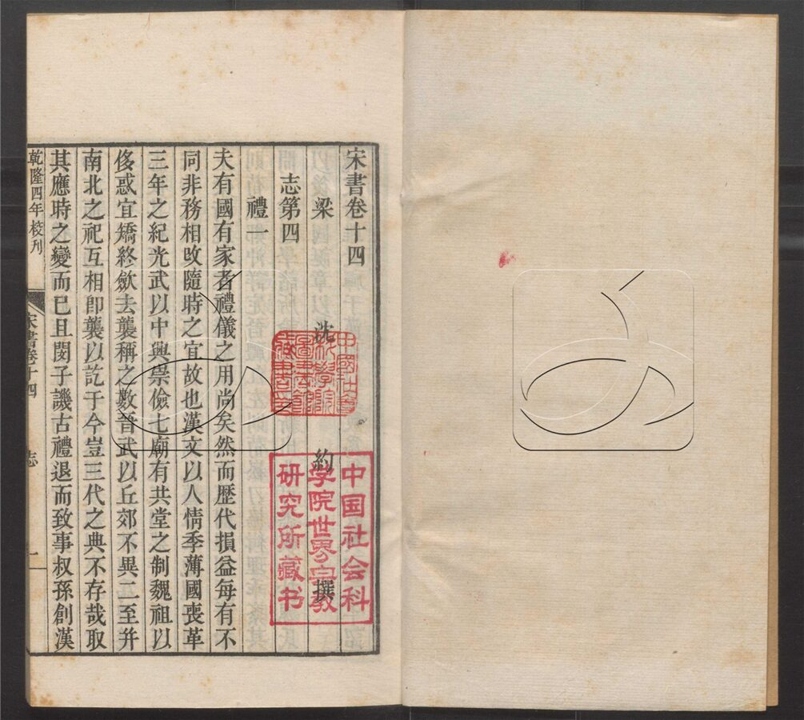 宋書卷十四
梁 沈 約 撰
志第四
禮一
夫有國有家者禮儀之用尚矣然而歷代損益每有不
同非務相改隨時之宜故也漢文以人情季薄國喪革
三年之紀光武以中興崇儉七廟有共堂之制魏祖以
侈惑宜矯終斂去襲稱之數晉武以丘郊不異二至并
南北之祀互相即襲以訖于今豈三代之典不存哉取
其應時之變而已且閔子譏古禮退而致事叔孫創漢
乾隆四年校刊
宋書卷十四 志 一
中国社会科
学院世界宗教
研究所藏书